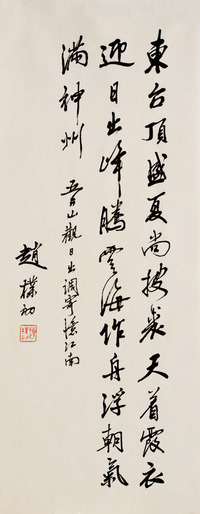 東台頂盛夏尚披裘天着霞衣
迎日出峰騰雲海作舟浮朝氣
滿神州
五台山觀日出調寄憶江南
趙樸初